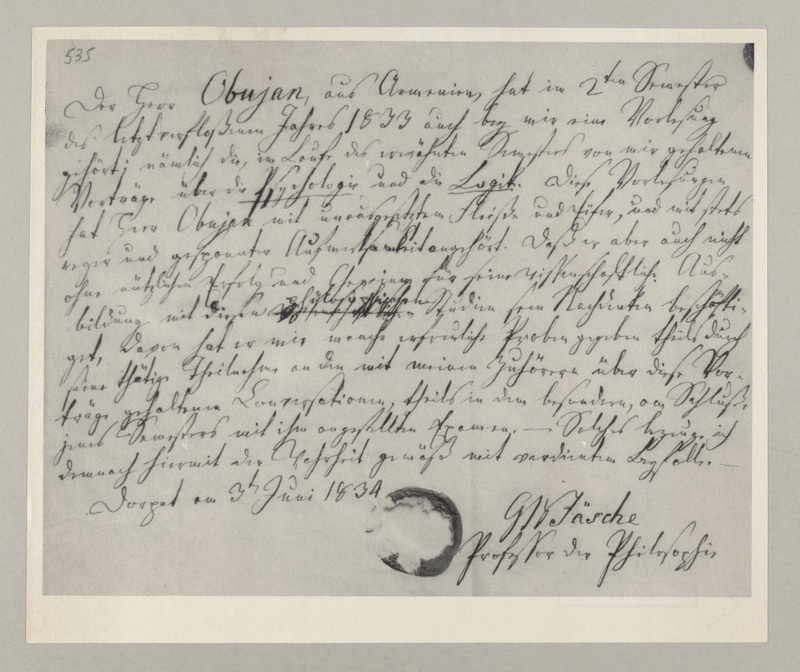 535
Der Herr Obujan, aus Armenien, hat im 2ten Semester
des letztverfloßenen Jahres 1833 auch bey mir eine Vorlesung
gehört; nämlich die, im Laufe des erwähnten Semesters von mir gehaltenen
Vorträge über die Psychologie und die Logik. Diese Vorlesungen
hat Herr Obujan mit unausgesetztem Fleiße und Eifer, und mit stets
reger und gespannter Aufmerksamkeit angehört. Daß er aber auch nicht
ohne nützlichen Erfolg und für seine wissenschaftliche Aus-
bildung mit diesen philosophischen Studien sein Nachdenken beschäfti-
get, davon hat er mir manche erfreuliche Proben gegeben theils durch
seine thätige Theilnahme an den mit meinen Zuhörern über diese Vor-
träge gehaltenen Conversationen, theils in dem besondern, am Schluße
jenes Semesters mit ihm angestellten Examen. — Solches bezeuge ich
demnach hiermit der Wahrheit gemäß mit verdientem Beyfalle. —
Dorpat am 3t Juni 1834
GBJäsche
Professor der Philosophie